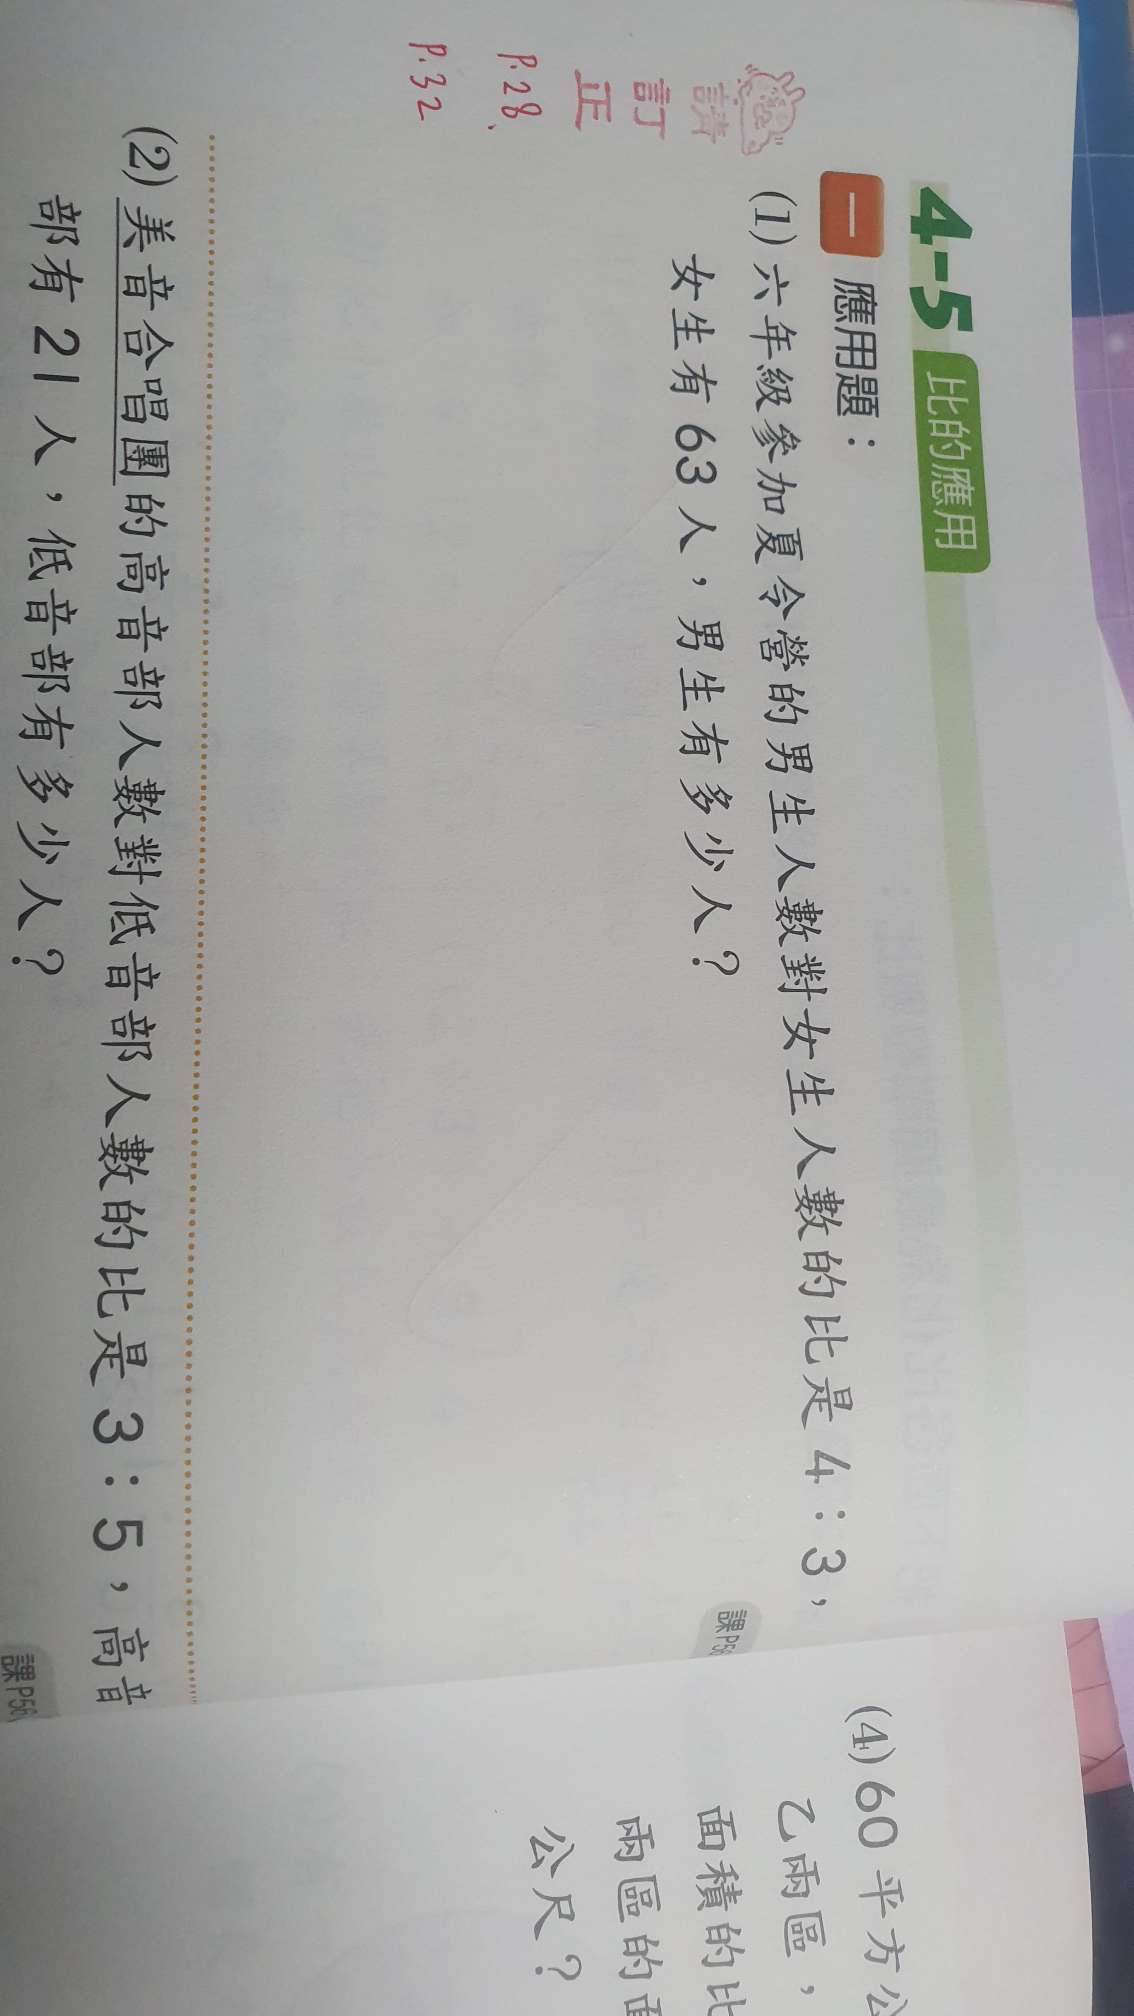 4-5 比的應用
一 應用題：
(1) 六年級參加夏令營的男生人數對女生人數的比是 4：3，
女生有 63 人，男生有多少人？
課P56
請
訂
正
P.28、
P.32
(2) 美音合唱團的高音部人數對低音部人數的比是 3：5，高音
部有 21 人，低音部有多少人？
課P56
(4) 60 平方公
乙兩區，
面積的比
兩區的面
公尺？